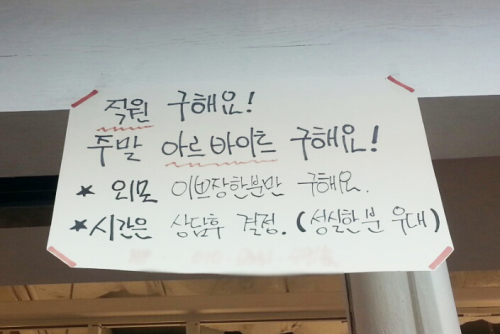 직원 구해요!
주말 아르바이트 구해요!
★ 외모 이쁘장한분만 구해요.
★ 시간은 상담후 결정. (성실한분 우대)